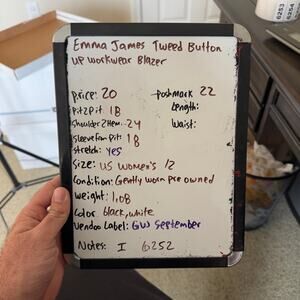 Emma James Tweed Button
up workwear Blazer
price: 20
poshmark 22
Pit2Pit 18
Length:
Shoulder2Hem: 24
Waist:
Sleeve from pit: 18
stretch: yes
Size: US Women's 12
Condition: Gently worn pre owned
weight: 1.08
Color black, white
Vendoo Label: GW September
Notes: I 6252
6253
6254